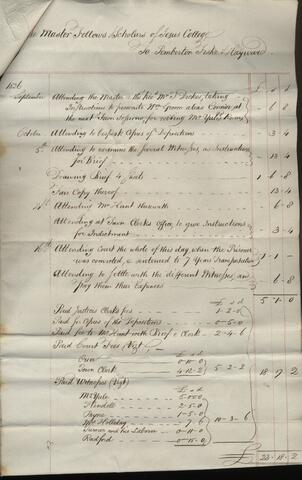 Master Fellows & Scholars of Jesus College
To Pemberton Fiske & Hayward
1826 £ s d
September Attending the Master & the Revd Mr taking
Instructions to prosecute Wm Green alias Connor at
the next Town Sessions for robbing Mr Yule's Rooms 6-8
October Attending to bespeak Copies of Depositions 3-4
5th Attending to examine the several Witnesses, as Instructions
for Brief 13-4
Drawing Brief 4 1-6-8
Fair Copy thereof 13-4
Attending Mr Hunt therewith 6-8
Attending at Town Clerks Office to give Instructions
for Indictment 3-4
16th Attending Court the whole of this day when the Prisoner
was convicted, & sentenced to 7 Years Transportation 1-1-
Attending to settle with the different Witnesses, and
pay them their Expences 6-8
5-1-0
£ s d
Paid Justices Clerks fees 1-2-0
Paid for Copies of the Depositions 0-5-0
Paid fee to Mr Hunt with Brief & Clerk 2-4-6
Paid Court Fees (Vizt) £ s d
Crier 0-10-0
Town Clerk 4-12-2 5-2-2
18-17-2
Paid Witnesses (Vizt)
Mr Yule 5-0-0
2-5-0
Payne 1-5-0
Mrs Holliday 7-6 10-3-6
Turner and his Laborer 0-11-0
Radford 0-15-0
£ 23-18-2